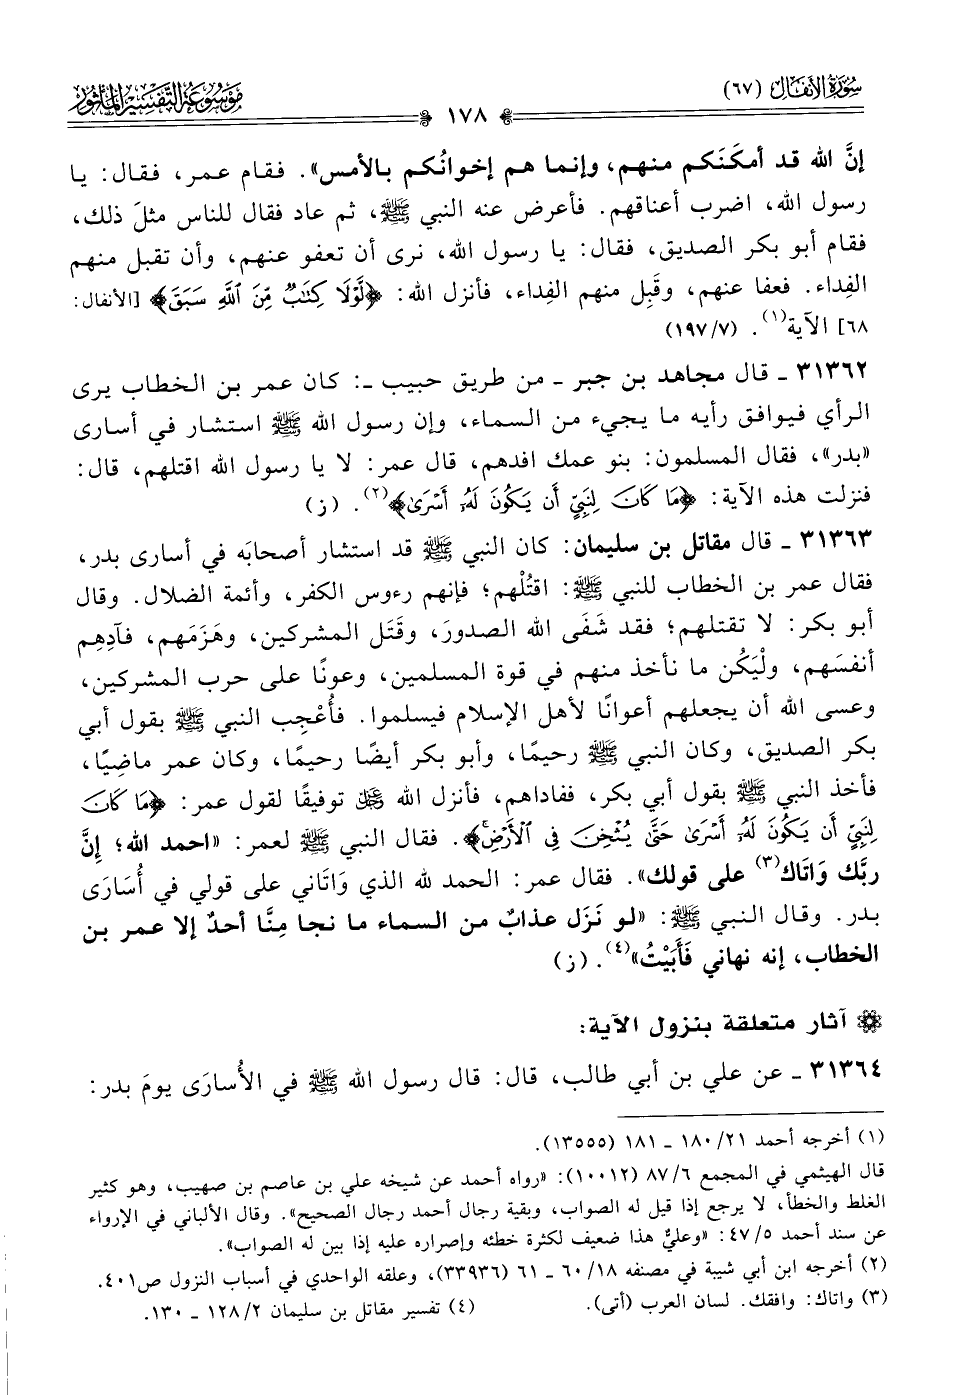 سُورَةُ الأَنفَال (٦٧)
١٧٨
مَوْسُوعَة التَّفْسِير المَأثُور
إنَّ الله قد أمكَنَكم منهم، وإنما هم إخوانُكم بالأمس». فقام عمر، فقال: يا
رسول الله، اضرب أعناقهم. فأعرض عنه النبي ﷺ، ثم عاد فقال للناس مثلَ ذلك،
فقام أبو بكر الصديق، فقال: يا رسول الله، نرى أن تعفو عنهم، وأن تقبل منهم
الفِداء. فعفا عنهم، وقَبِل منهم الفِداء، فأنزل الله: ﴿لَّوْلَا كِتَٰبٌ مِّنَ ٱللَّهِ سَبَقَ﴾ [الأنفال:
٦٨] الآية(١). (٧/ ١٩٧)
٣١٣٦٢ ـ قال مجاهد بن جبر ـ من طريق حبيب ـ: كان عمر بن الخطاب يرى
الرأي فيوافق رأيه ما يجيء من السماء، وإن رسول الله ﷺ استشار في أسارى
«بدر»، فقال المسلمون: بنو عمك افدهم، قال عمر: لا يا رسول الله اقتلهم، قال:
فنزلت هذه الآية: ﴿مَا كَانَ لِنَبِيٍّ أَن يَكُونَ لَهُۥٓ أَسْرَىٰ﴾(٢). (ز)
٣١٣٦٣ ـ قال مقاتل بن سليمان: كان النبي ﷺ قد استشار أصحابَه في أسارى بدر،
فقال عمر بن الخطاب للنبي ﷺ: اقتُلْهم؛ فإنهم رءوس الكفر، وأئمة الضلال. وقال
أبو بكر: لا تقتلهم؛ فقد شَفَى الله الصدورَ، وقَتَل المشركين، وهَزَمَهم، فآدِهِم
أنفسَهم، ولْيَكُن ما نأخذ منهم في قوة المسلمين، وعونًا على حرب المشركين،
وعسى الله أن يجعلهم أعوانًا لأهل الإسلام فيسلموا. فأُعْجِب النبي ﷺ بقول أبي
بكر الصديق، وكان النبي ﷺ رحيمًا، وأبو بكر أيضًا رحيمًا، وكان عمر ماضِيًا،
فأخذ النبي ﷺ بقول أبي بكر، ففاداهم، فأنزل الله ﷻ توفيقًا لقول عمر: ﴿مَا كَانَ
لِنَبِيٍّ أَن يَكُونَ لَهُۥٓ أَسْرَىٰ حَتَّىٰ يُثْخِنَ فِى ٱلْأَرْضِ﴾. فقال النبي ﷺ لعمر: «احمد الله؛ إنَّ
ربَّك وَاتَاك(٣) على قولك». فقال عمر: الحمد لله الذي وَاتَاني على قولي في أُسَارَى
بدر. وقال النبي ﷺ: «لو نَزَل عذابٌ من السماء ما نجا مِنَّا أحدٌ إلا عمر بن
الخطاب، إنه نهاني فَأَبَيْتُ»(٤). (ز)
آثار متعلقة بنزول الآية:
٣١٣٦٤ ـ عن علي بن أبي طالب، قال: قال رسول الله ﷺ في الأُسارَى يومَ بدر:
(١) أخرجه أحمد ٢١/ ١٨٠ ـ ١٨١ (١٣٥٥٥).
قال الهيثمي في المجمع ٦/ ٨٧ (١٠٠١٢): «رواه أحمد عن شيخه علي بن عاصم بن صهيب، وهو كثير
الغلط والخطأ، لا يرجع إذا قيل له الصواب، وبقية رجال أحمد رجال الصحيح». وقال الألباني في الإرواء
عن سند أحمد ٥/ ٤٧: «وعليٌّ هذا ضعيف لكثرة خطئه وإصراره عليه إذا بين له الصواب».
(٢) أخرجه ابن أبي شيبة في مصنفه ١٨/ ٦٠ ـ ٦١ (٣٣٩٣٦)، وعلقه الواحدي في أسباب النزول ص٤٠١.
(٣) واتاك: وافقك. لسان العرب (أتى).
(٤) تفسير مقاتل بن سليمان ٢/ ١٢٨ ـ ١٣٠.